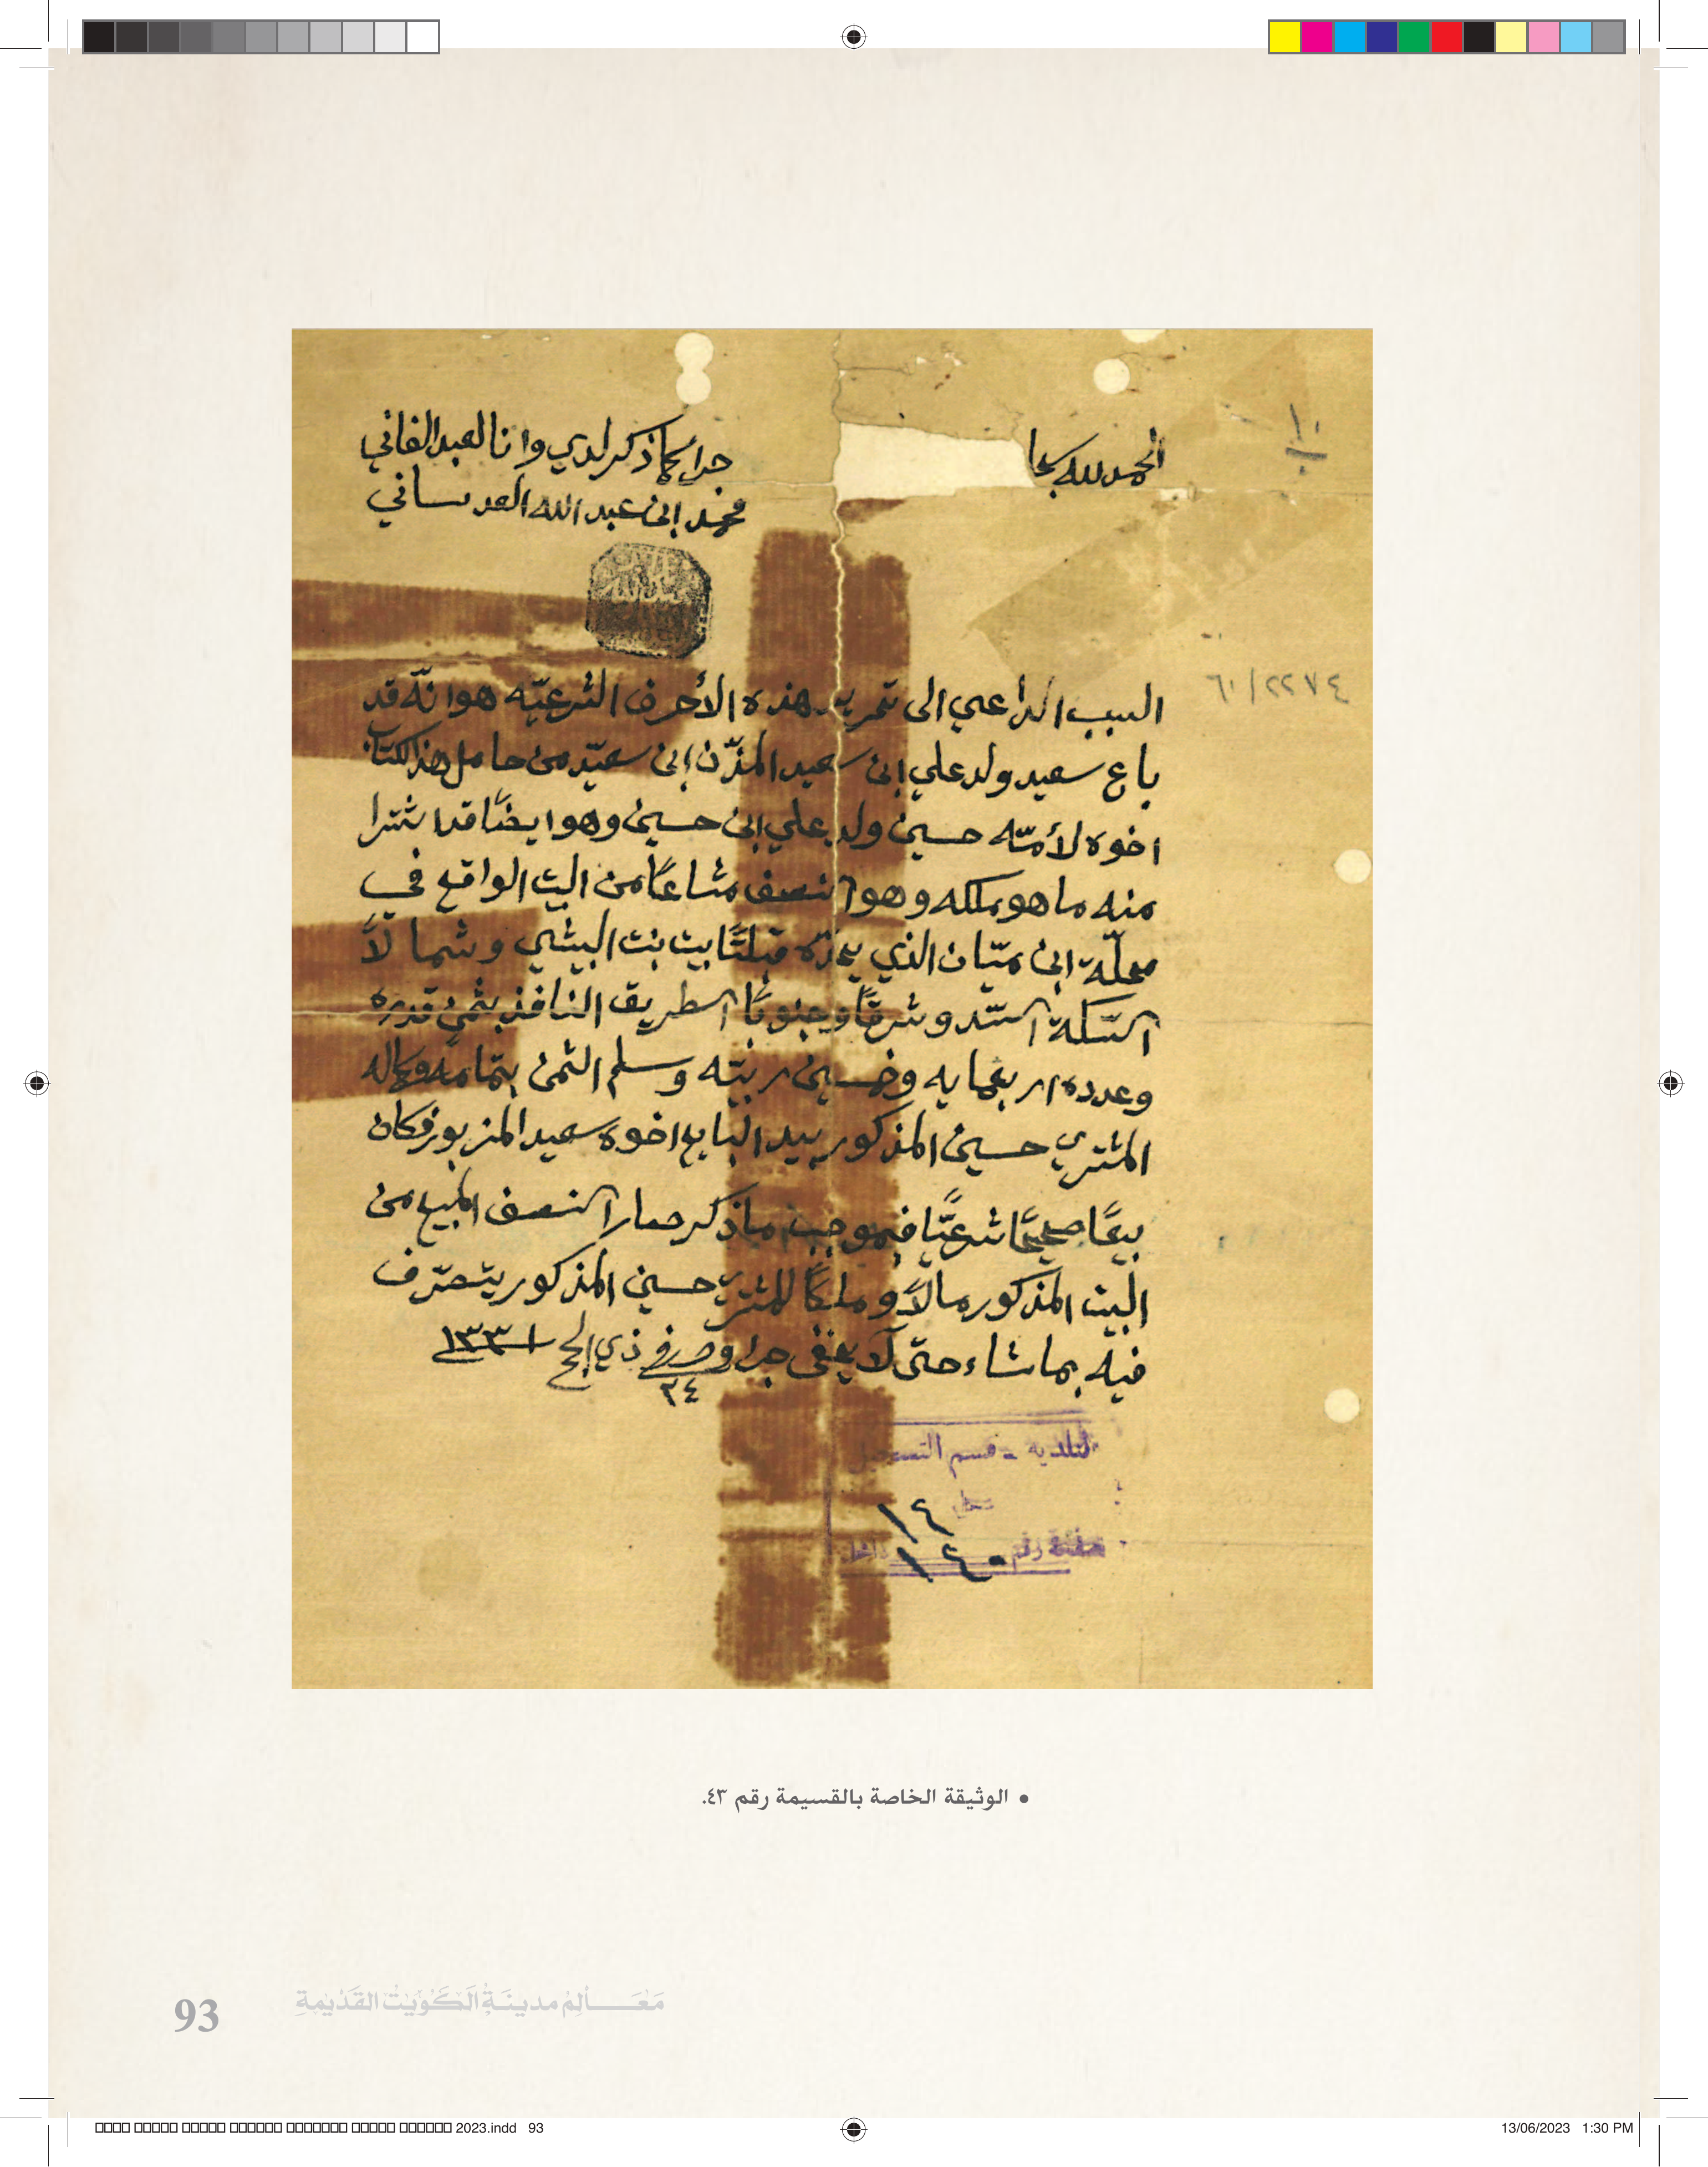 الحمد لله سبحا
جرا كما ذكر لدي وانا العبد الفاني
محمد ابن عبد الله العدساني
١٠
٦٠/٢٢٧٤
السبب الداعي الى تحرير هذه الأحرف الشرعيّه هو انّه قد
باع سعيد ولد علي ابن سعيد المذّن ابن سعيّد من حامل هذا الكتاب
اخوه لأمّه حسين ولد علي ابن حسين وهو ايضًا قد اشترا
منه ما هو ملكه وهو النصف مشاعًا من البيت الواقع في
محلّة ابن ميّان الذي يحدّه قبلتًا بيت بنت البيشي وشمالاً
السّكة السّد وشرقًا وجنوبًا الطريق النافذ بثمن قدره
وعدده اربعمايه وخمسين ربيّه وسلم الثمن بتمامه وكماله
المشتري حسين المذكور بيد البايع اخوه سعيد المزبور فكان
بيعًا صحيحًا شرعيًّا فبموجب ما ذكر صار النصف المبيع من
البيت المذكور مالاً وملكًا للمشتري حسين المذكور يتصرّف
فيه بما شاء حتى لا يخفى جرا وحرر في ٢٤ ذي الحج ١٣٣١
البلدية - قسم التسجيل
سجل ١٤
صفحة رقم ١٤٠
• الوثيقة الخاصة بالقسيمة رقم ٤٣.
93 مَعَـالِمُ مدينَةِ الكُوَيْتِ القَدْيمةِ
2023.indd 93
13/06/2023 1:30 PM